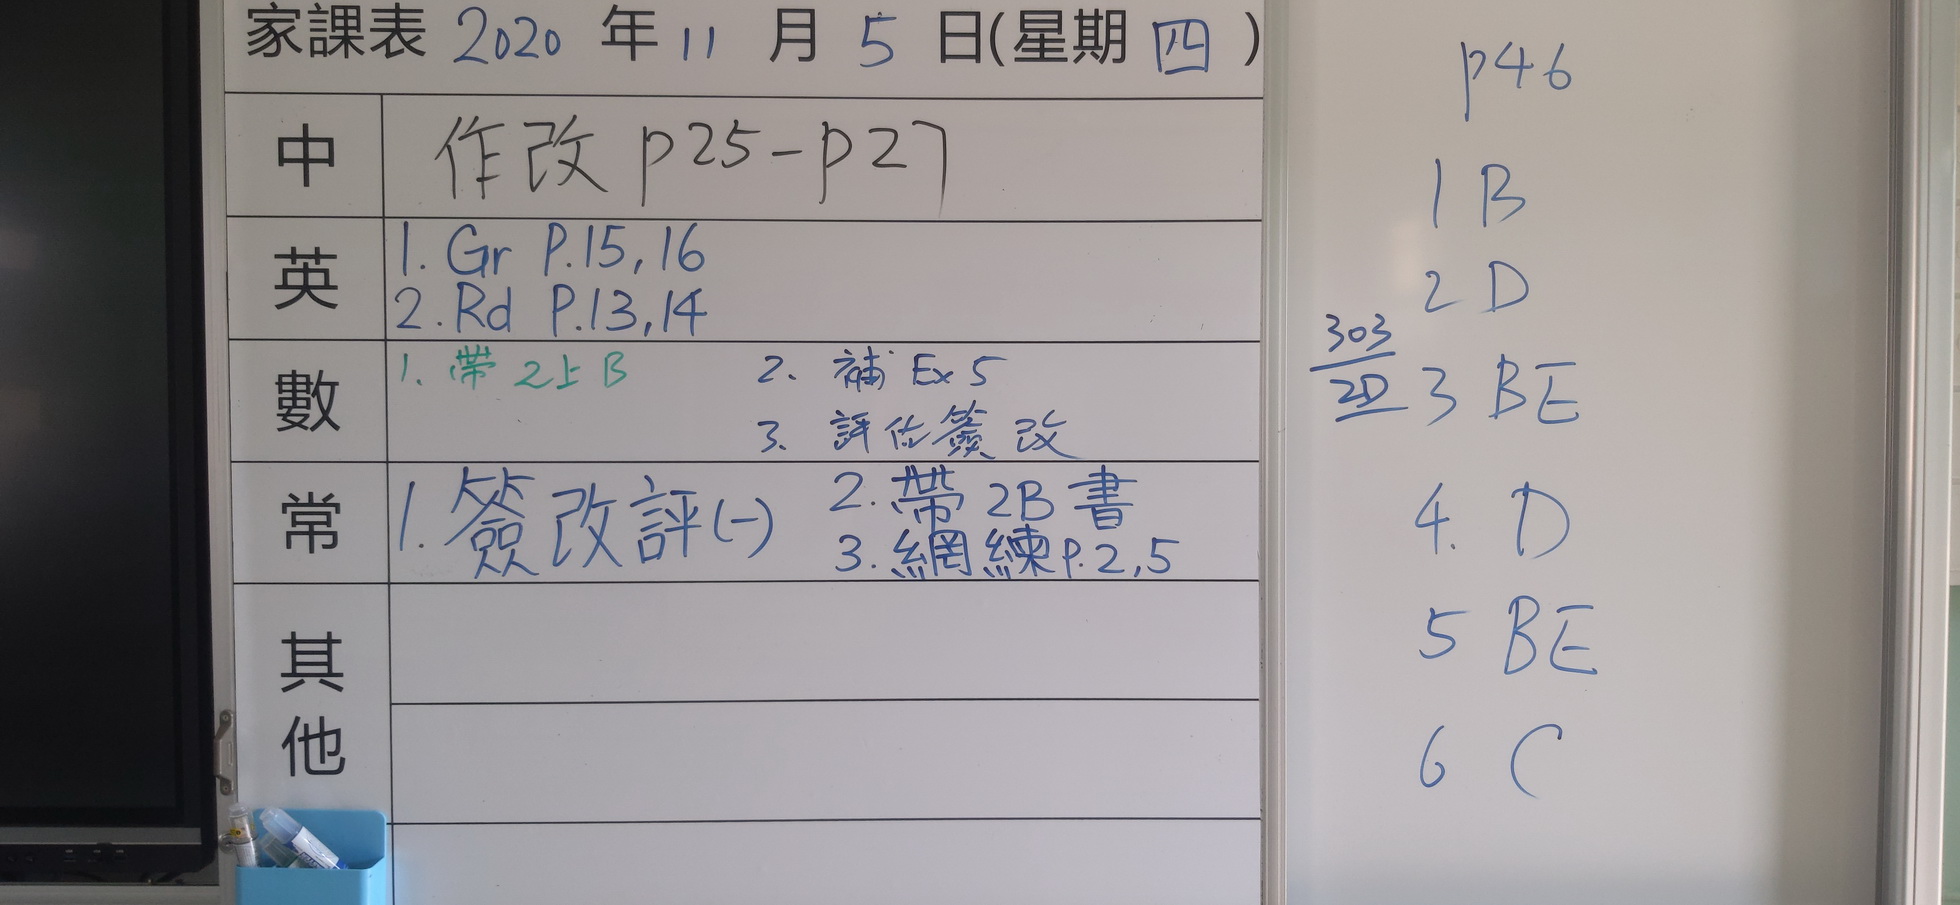 家課表 2020 年 11 月 5 日(星期 四 )
中 作改 p25-p27
英
1. Gr P.15,16
2. Rd P.13,14
數
1. 帶 2上B 2. 補 Ex 5
3. 評估簽改
常
1. 簽改評(一) 2. 帶 2B 書
3. 網練P.2,5
其他
p46
1 B
2 D
303
2D
3 BE
4. D
5 BE
6 C